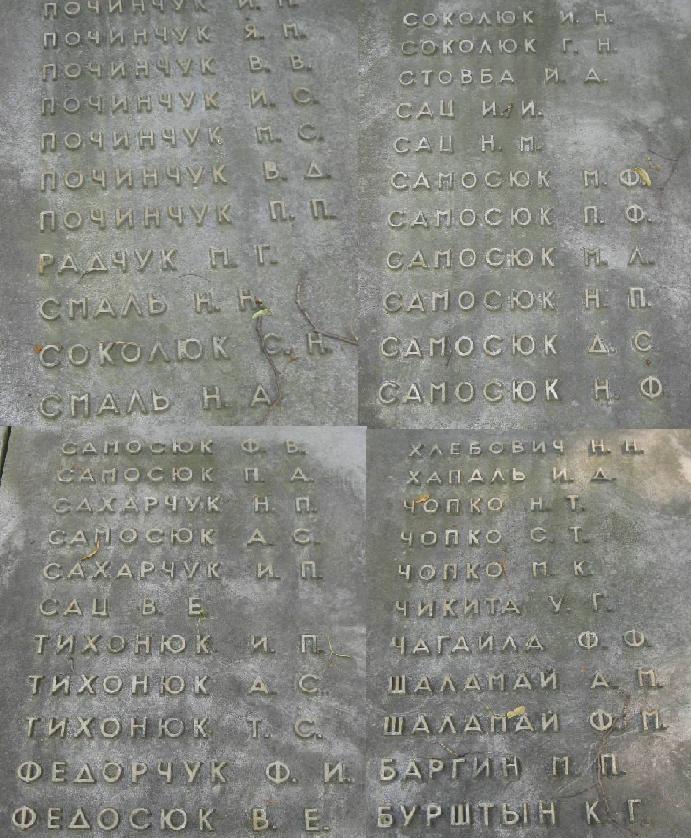 ПОЧИНЧУК И. П.
ПОЧИНЧУК Я. М.
ПОЧИНЧУК В. В.
ПОЧИНЧУК И. С.
ПОЧИНЧУК М. С.
ПОЧИНЧУК В. Д.
ПОЧИНЧУК П. П.
РАДЧУК М. Г.
СМАЛЬ Н. Н.
СОКОЛЮК С. Н.
СМАЛЬ Н. А.
СОКОЛЮК И. Н.
СОКОЛЮК Г. Н.
СТОВБА И. А.
САЦ И. И.
САЦ Н. М.
САМОСЮК М. Ф.
САМОСЮК П. Ф.
САМОСЮК М. Л.
САМОСЮК Н. П.
САМОСЮК Д. С
САМОСЮК Н. Ф
САМОСЮК Ф. В.
САМОСЮК П. А.
САХАРЧУК Н. П.
САМОСЮК А. С.
САХАРЧУК И. П.
САЦ В. Е.
ТИХОНЮК И. П.
ТИХОНЮК А. С.
ТИХОНЮК Т. С.
ФЕДОРЧУК Ф. И.
ФЕДОСЮК В. Е.
ХЛЕБОВИЧ Н. Н.
ХАПАЛЬ И. Д.
ЧОПКО Н. Т.
ЧОПКО С. Т.
ЧОПКО М. К.
ЧИКИТА У. Г.
ЧАГАИЛА Ф. Ф.
ШАЛАМАЙ А. М.
ШАЛАМАЙ Ф. М.
БАРГИН М. П.
БУРШТЫН К. Г.